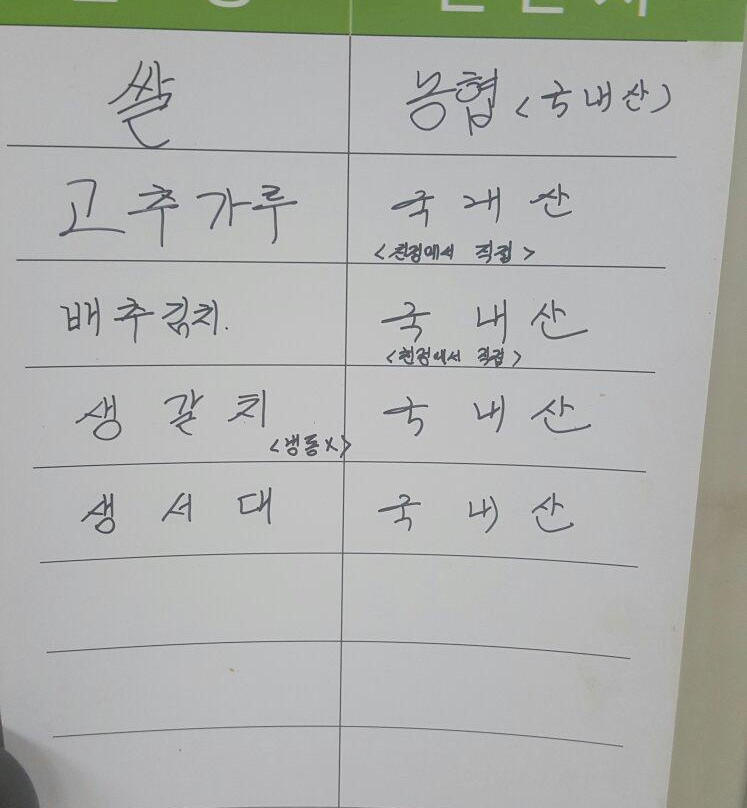 쌀 농협 <국내산>
고추가루 국내산
<친정에서 직접>
배추김치. 국내산
<친정에서 직접>
생갈치 국내산
<냉동X>
생서대 국내산